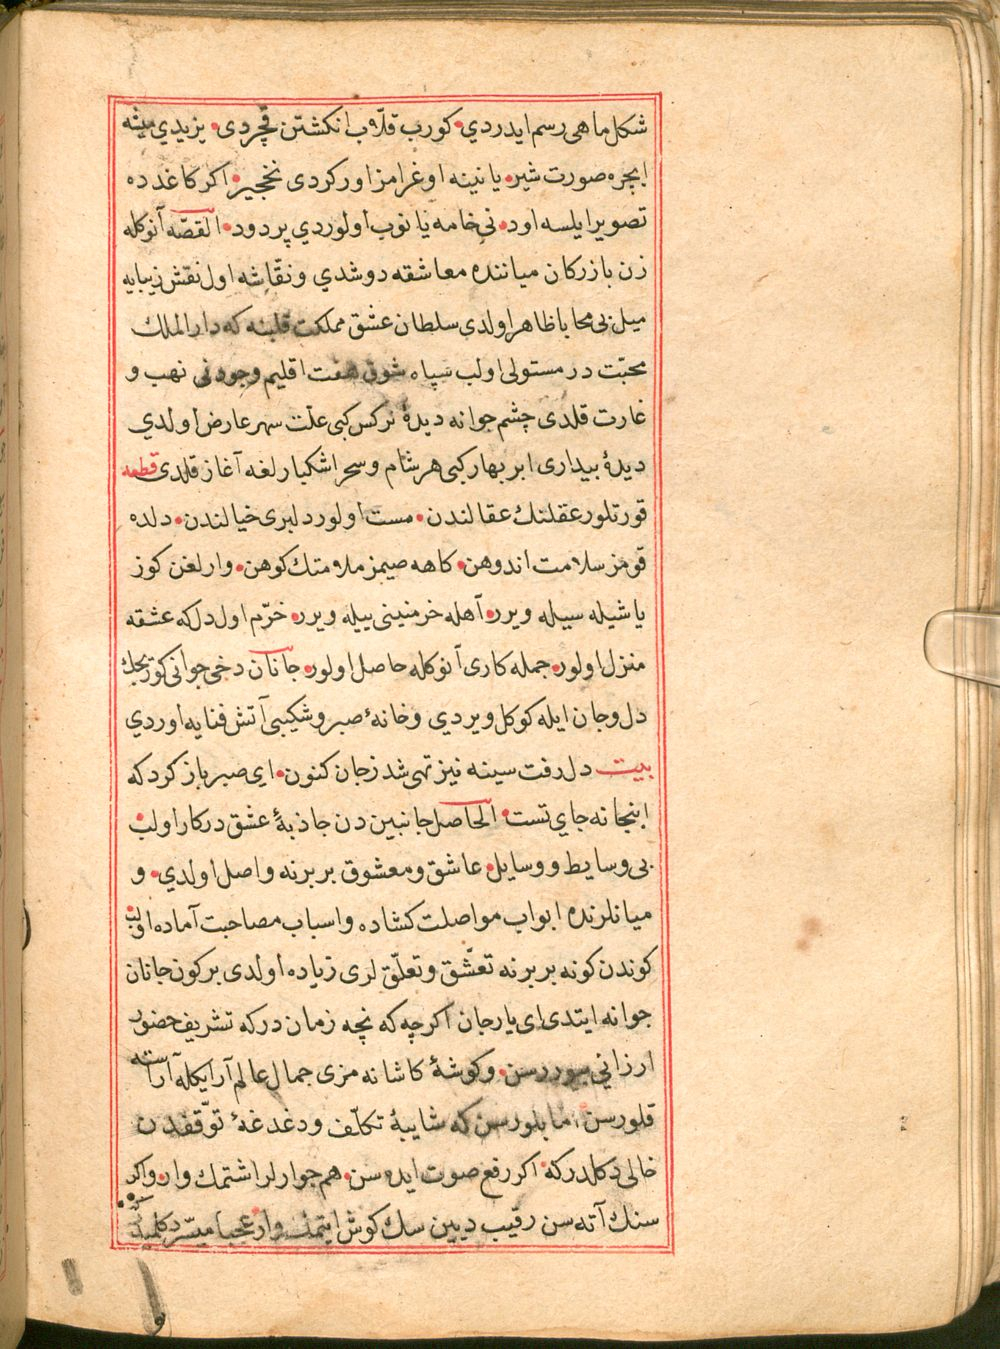 شكل ماهی رسم ایدردي كورب قلّاب انكشتن قچردی یزیدي میشه
ایچره صورت شیر یا نینه اوغرامز اوركردی نخجیر اكر كاغد ده
تصویر ایلسه اود نی خامه یا نوب اولوردي پر دود القصّه آنوكله
زن بازركان میاننده معاشقه دوشدي ونقّاشه اول نقش زیبایه
میل بی محابا ظاهر اولدی سلطان عشق مملكت قلبنه كه دار الملك
محبّت در مستولی اولب سپاه شوق هفت اقلیم وجودنی نهب و
غارت قلدی چشم جوانه دیدهٔ نركس كبی علّت سهر عارض اولدي
دیدهٔ بیداری ابر بهار كبی هر شام و سحر اشكبارلغه آغاز قلدی قطعه
قورتلور عقلنك عقالندن مست اولور دلبری خیالندن دلده
قومز سلامت اندوهن كاهه صیمز ملامتك كوهن وارلغن كوز
یاشیله سیله ویرر آهله خرمنینی ییله ویرر خرّم اول دل كه عشقه
منزل اولور جمله كاری آنوكله حاصل اولور جانان دخی جوانی كوریجك
دل وجان ایله كوكل ویردي وخانهٔ صبر وشكیبی آتش فنایه اوردي
بیت دل رفت سینه نیز تهی شد زجان كنون ای صبر باز كرد كه
اینجا نه جاي تست الحاصل جانبین دن جاذبهٔ عشق دركار اولب
بی وسایط و وسایل عاشق ومعشوق بر برنه واصل اولدي و
میانلرنده ابواب مواصلت كشاده واسباب مصاحبت آماده اولب
كوندن كونه بر برنه تعشّق وتعلّق لری زیاده اولدی بر كون جانان
جوانه ایتدی ای یار جان اكرچه كه نچه زمان در كه تشریف حضور
ارزانی بیوررسن وكوشهٔ كاشانه مزی جمال عالم آرایكله آراسته
قلورسن اما بلورسن كه شایبهٔ تكلّف ودغدغهٔ توقّفدن
خالی دكلدر كه اكر رفع صوت ایده سن هم جوارلر اشتمك وار واكر
سنك آته سن رقیب دیین سك كوش ایتمك وار عجبا میسّر دكلمیدر